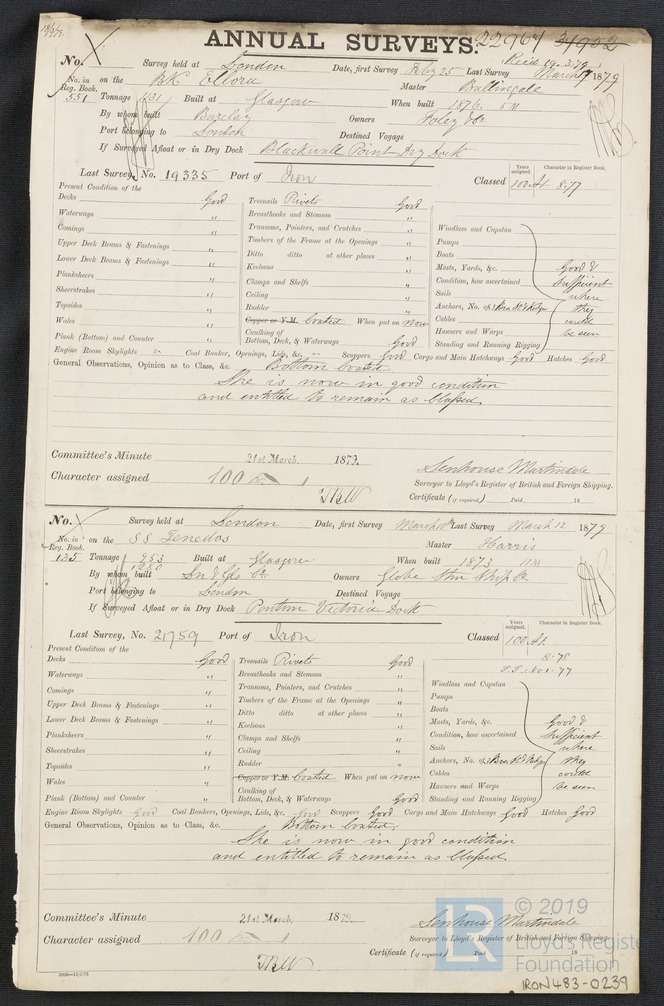 ANNUAL SURVEYS. 22964 31952
Recd 19.3.79
No. X Survey held at London Date, first Survey Feby 25 Last Survey March 1879
No. in Reg. Book. 551 on the Bk Ellora Master Bullingale
Tonnage 1131 Built at Glasgow When built 1876. 5M
By whom built Barclay Owners Foley &Co
Port belonging to London Destined Voyage
If Surveyed Afloat or in Dry Dock Blackwall Point Dry Dock
Last Survey, No. 19335 Port of Iron Classed Years assigned. 100 A1 Character in Register Book. 8.77
Present Condition of the
Decks Good Treenails Rivets Good
Waterways " Breasthooks and Stemson "
Comings " Transoms, Pointers, and Crutches " Windlass and Capstan
Upper Deck Beams & Fastenings " Timbers of the Frame at the Openings " Pumps
Lower Deck Beams & Fastenings " Ditto ditto at other places " Boats
Planksheers " Keelsons " Masts, Yards, &c. Good &
Sheerstrakes " Clamps and Shelfs " Condition, how ascertained sufficient
Topsides " Ceiling " Sails where
Wales " Rudder " Anchors, No. of they
Copper or Y.M. Coated When put on now Cables could
Plank (Bottom) and Counter " Caulking of Bottom, Deck, & Waterways Good Hawsers and Warps be seen
Standing and Running Rigging
Engine Room Skylights " Coal Bunker, Openings, Lids, &c. " Scuppers Good Cargo and Main Hatchways Good Hatches Good
General Observations, Opinion as to Class, &c. Bottom Coated
She is now in good condition
and entitled to remain as Classed.
Committee's Minute 21st March. 1879.
Character assigned 100 A 1 Senhouse Martindale
Surveyor to Lloyd's Register of British and Foreign Shipping.
Certificate (if required) Paid 18
No. X Survey held at London Date, first Survey March 10th Last Survey March 12 1879
No. in Reg. Book. 135 on the SS Tenedos Master Harris
Tonnage 1953 Built at Glasgow When built 1873 11M
By whom built Ln & Gls Co. Owners Globe Stm Ship Co.
Port belonging to London Destined Voyage
If Surveyed Afloat or in Dry Dock Pontoon Victoria Dock
Last Survey, No. 21759 Port of Iron Classed Years assigned. 100 A1 Character in Register Book.
8.78
S.S. Nov.77
Present Condition of the
Decks Good Treenails Rivets Good
Waterways " Breasthooks and Stemson " Windlass and Capstan
Comings " Transoms, Pointers, and Crutches " Pumps
Upper Deck Beams & Fastenings " Timbers of the Frame at the Openings " Boats
Lower Deck Beams & Fastenings " Ditto ditto at other places " Masts, Yards, &c. Good &
Planksheers " Keelsons " Condition, how ascertained sufficient
Sheerstrakes " Clamps and Shelfs " Sails where
Topsides " Ceiling " Anchors, No. of they
Wales " Rudder " Cables could
Copper or Y.M. Coated When put on now Hawsers and Warps be seen
Plank (Bottom) and Counter " Caulking of Bottom, Deck, & Waterways Good Standing and Running Rigging
Engine Room Skylights Good Coal Bunkers, Openings, Lids, &c. Good Scuppers Good Cargo and Main Hatchways Good Hatches Good
General Observations, Opinion as to Class, &c. Bottom Coated.
She is now in good condition
and entitled to remain as Classed.
Committee's Minute 21st March. 1879. Senhouse Martindale
Character assigned 100 A 1 Surveyor to Lloyd's Register of British and Foreign Shipping.
Certificate (if required) 18
© 2019
LR Lloyd's Register
Foundation
IRON 483-0239